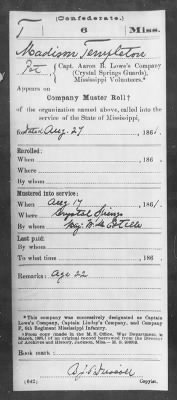 (Confederate.)
T 6 Miss.
Madison Templeton
Pvt { Capt. Aaron B. Lowe's Company
(Crystal Springs Guards),
Mississippi Volunteers.*
Appears on
Company Muster Roll†
of the organization named above, called into the
service of the State of Mississippi,
for dates Aug. 27, 1861.
Enrolled:
When , 186 .
Where
By whom
Mustered into service:
When Aug 17, 1861.
Where Crystal Springs
By whom Maj. W. M. Estelle
Last paid:
By whom
To what time , 186 .
Remarks: Age 22
*This company was successively designated as Captain
Lowe's Company, Captain Company, and Company
F, 6th Regiment Mississippi Infantry.
†From copy made in the M. S. Office, War Department, in
March, of an original record borrowed from the Director
of Archives and History, Jackson, Miss.
Book mark:
(642) Copyist.